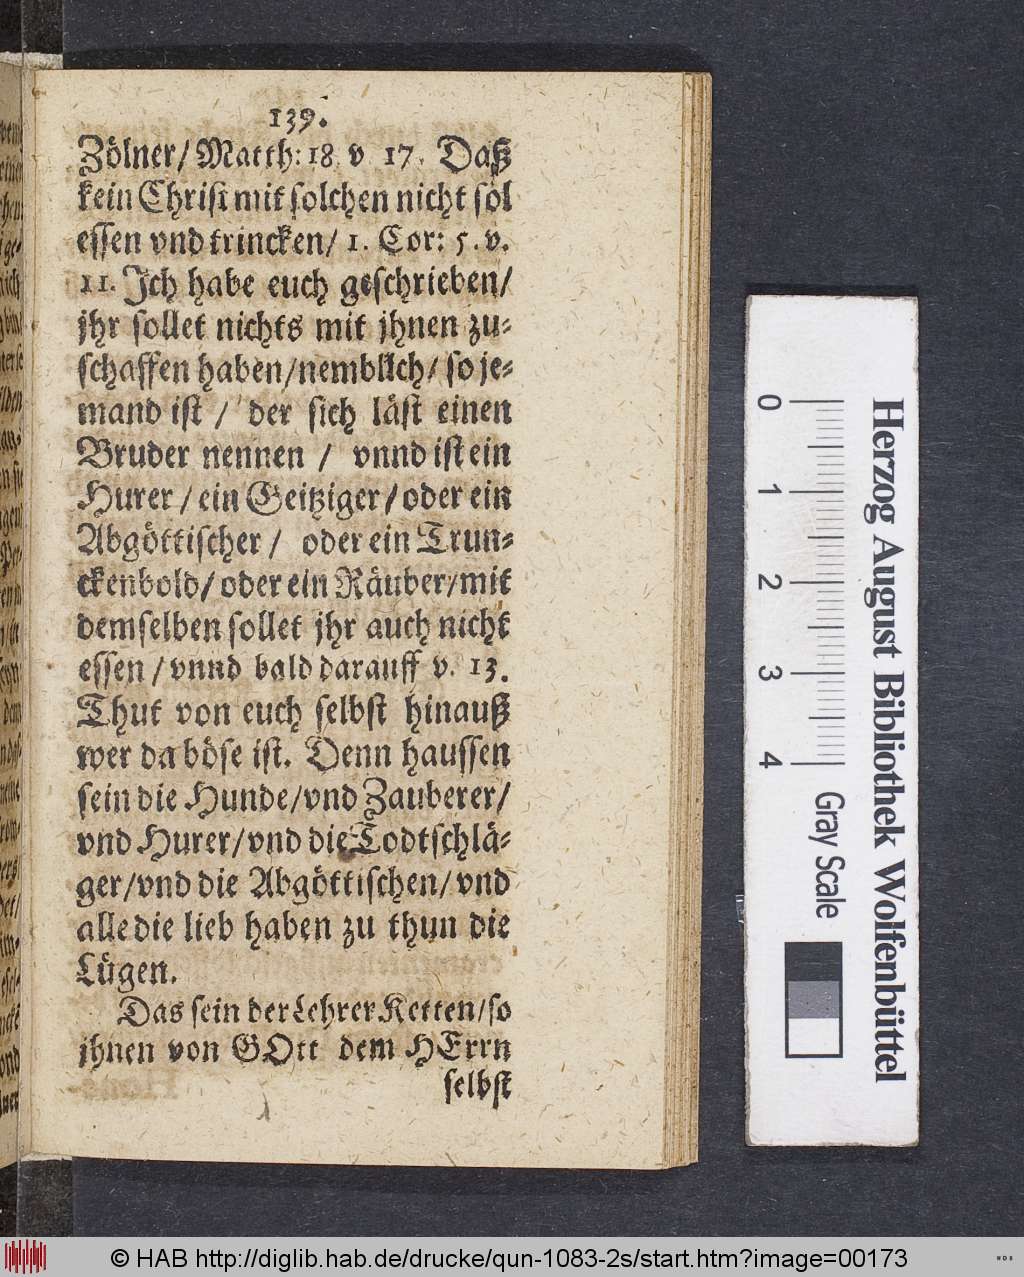 139.
Zölner/ Matth: 18 v 17. Daß
kein Christ mit solchen nicht sol
essen vnd trincken/ 1. Cor: 5. v.
11. Ich habe euch geschrieben/
jhr sollet nichts mit jhnen zu-
schaffen haben/nemblich/ so je-
mand ist / der sich läst einen
Bruder nennen / vnnd ist ein
Hurer / ein Geitziger / oder ein
Abgöttischer / oder ein Trun-
ckenbold/ oder ein Räuber/mit
demselben sollet jhr auch nicht
essen / vnnd bald darauff v. 13.
Thut von euch selbst hinauß
wer da böse ist. Denn haussen
sein die Hunde/vnd Zauberer/
vnd Hurer/vnd die Todtschlä-
ger/vnd die Abgöttischen/ vnd
alle die lieb haben zu thun die
Lügen.
Das sein der Lehrer Ketten/so
jhnen von GOtt dem HErrn
selbst
0 1 2 3 4
Gray Scale
Herzog August Bibliothek Wolfenbüttel
© HAB http://diglib.hab.de/drucke/qun-1083-2s/start.htm?image=00173